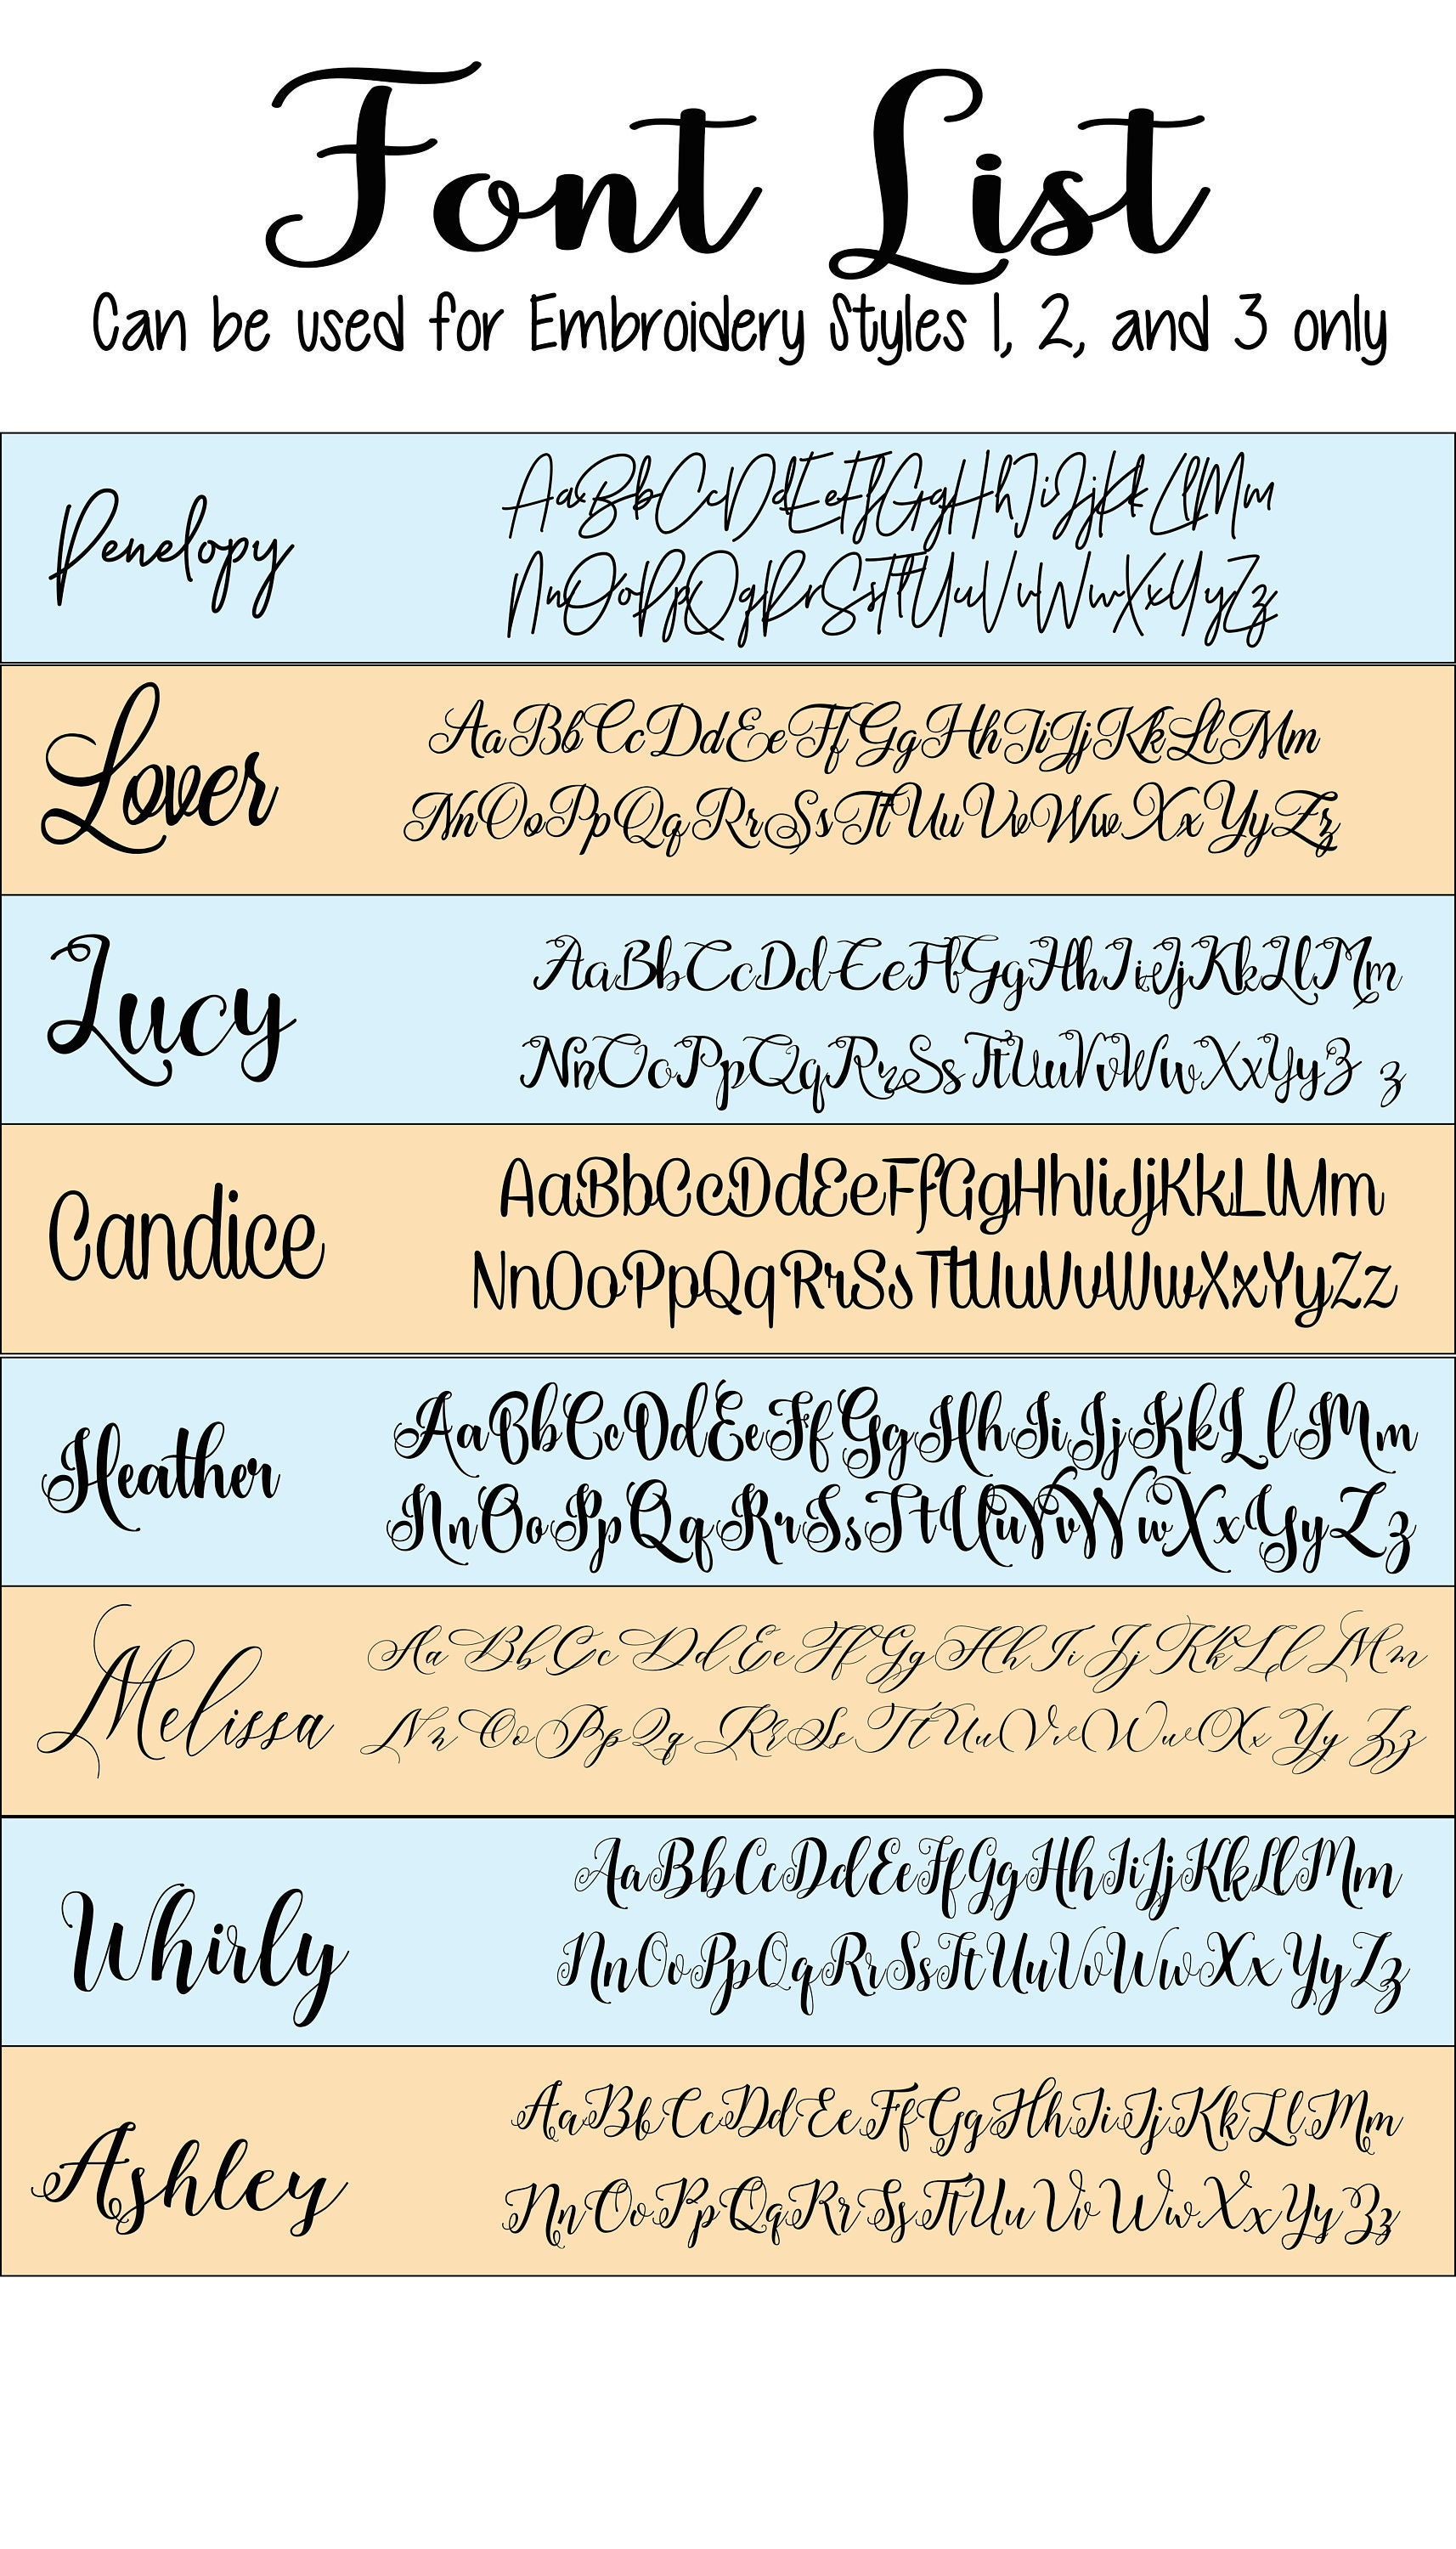 Font List
Can be used for Embroidery Styles 1, 2, and 3 only
Penelopy
AaBbCcDdEeFfGgHhIiJjKkLlMm
NnOoPpQqRrSsTtUuVvWwXxYyZz
Lover
AaBbCcDdEeFfGgHhIiJjKkLlMm
NnOoPpQqRrSsTtUuVvWwXxYyZz
Lucy
AaBbCcDdEeFfGgHhIiJjKkLlMm
NnOoPpQqRrSsTtUuVvWwXxYyZ z
Candice
AaBbCcDdEeFfGgHhIiJjKkLlMm
NnOoPpQqRrSsTtUuVvWwXxYyZz
Heather
AaBbCcDdEeFfGgHhIiJjKkLlMm
NnOoPpQqRrSsTtUuVvWwXxYyZz
Melissa
AaBbCcDdEeFfGgHhIiJjKkLlMm
NnOoPpQqRrSsTtUuVvWwXxYyZz
Whirly
AaBbCcDdEeFfGgHhIiJjKkLlMm
NnOoPpQqRrSsTtUuVvWwXxYyZz
Ashley
AaBbCcDdEeFfGgHhIiJjKkLlMm
NnOoPpQqRrSsTtUuVvWwXxYyZz